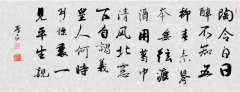 陶令日日
醉不知五
柳春素琴
本無弦漉
酒用葛巾
清風北窗
下自謂羲
皇人何時
到栗里一
見平生親